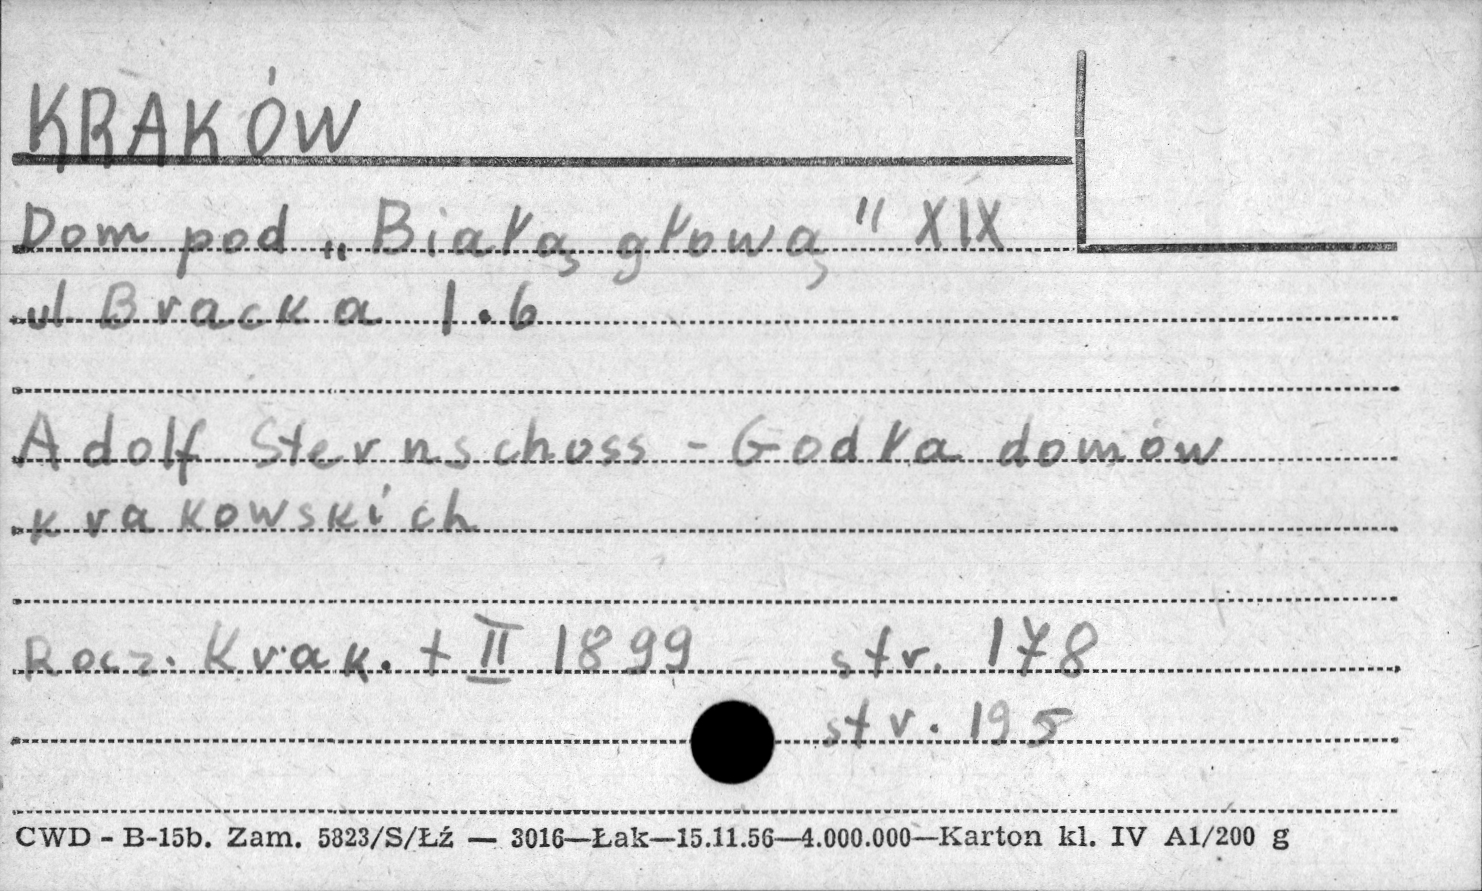 KRAKÓW
Dom pod „Białą głową" XIX
ul Bracka l.6
Adolf Sternschoss - Godła domów
krakowskich
Rocz. Krak. t II 1899 str. 178
str. 195
CWD - B-15b. Zam. 5823/S/Łź — 3016—Łak—15.11.56—4.000.000—Karton kl. IV A1/200 g